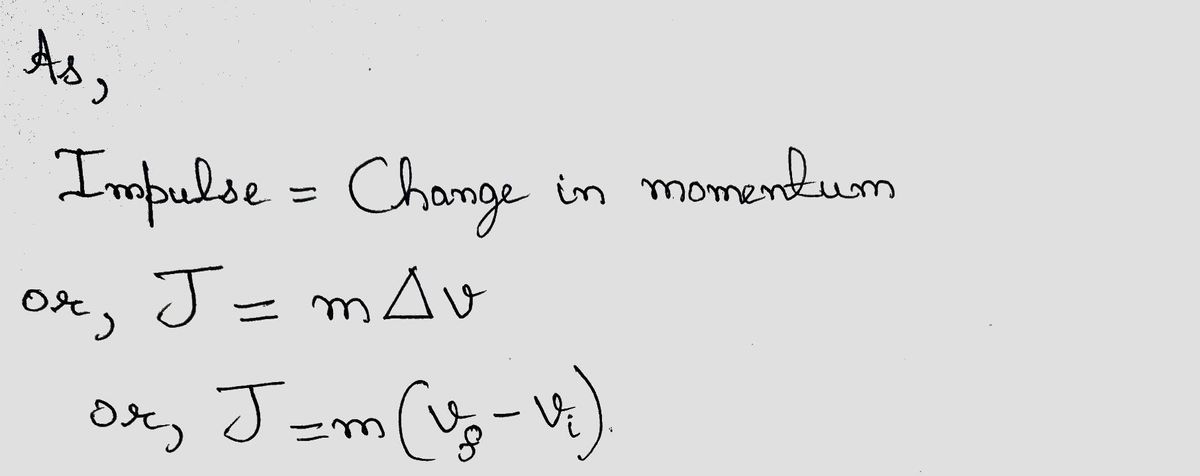 As,
Impulse = Change in momentum
or, J = m Δv
or, J = m(v_f - v_i).